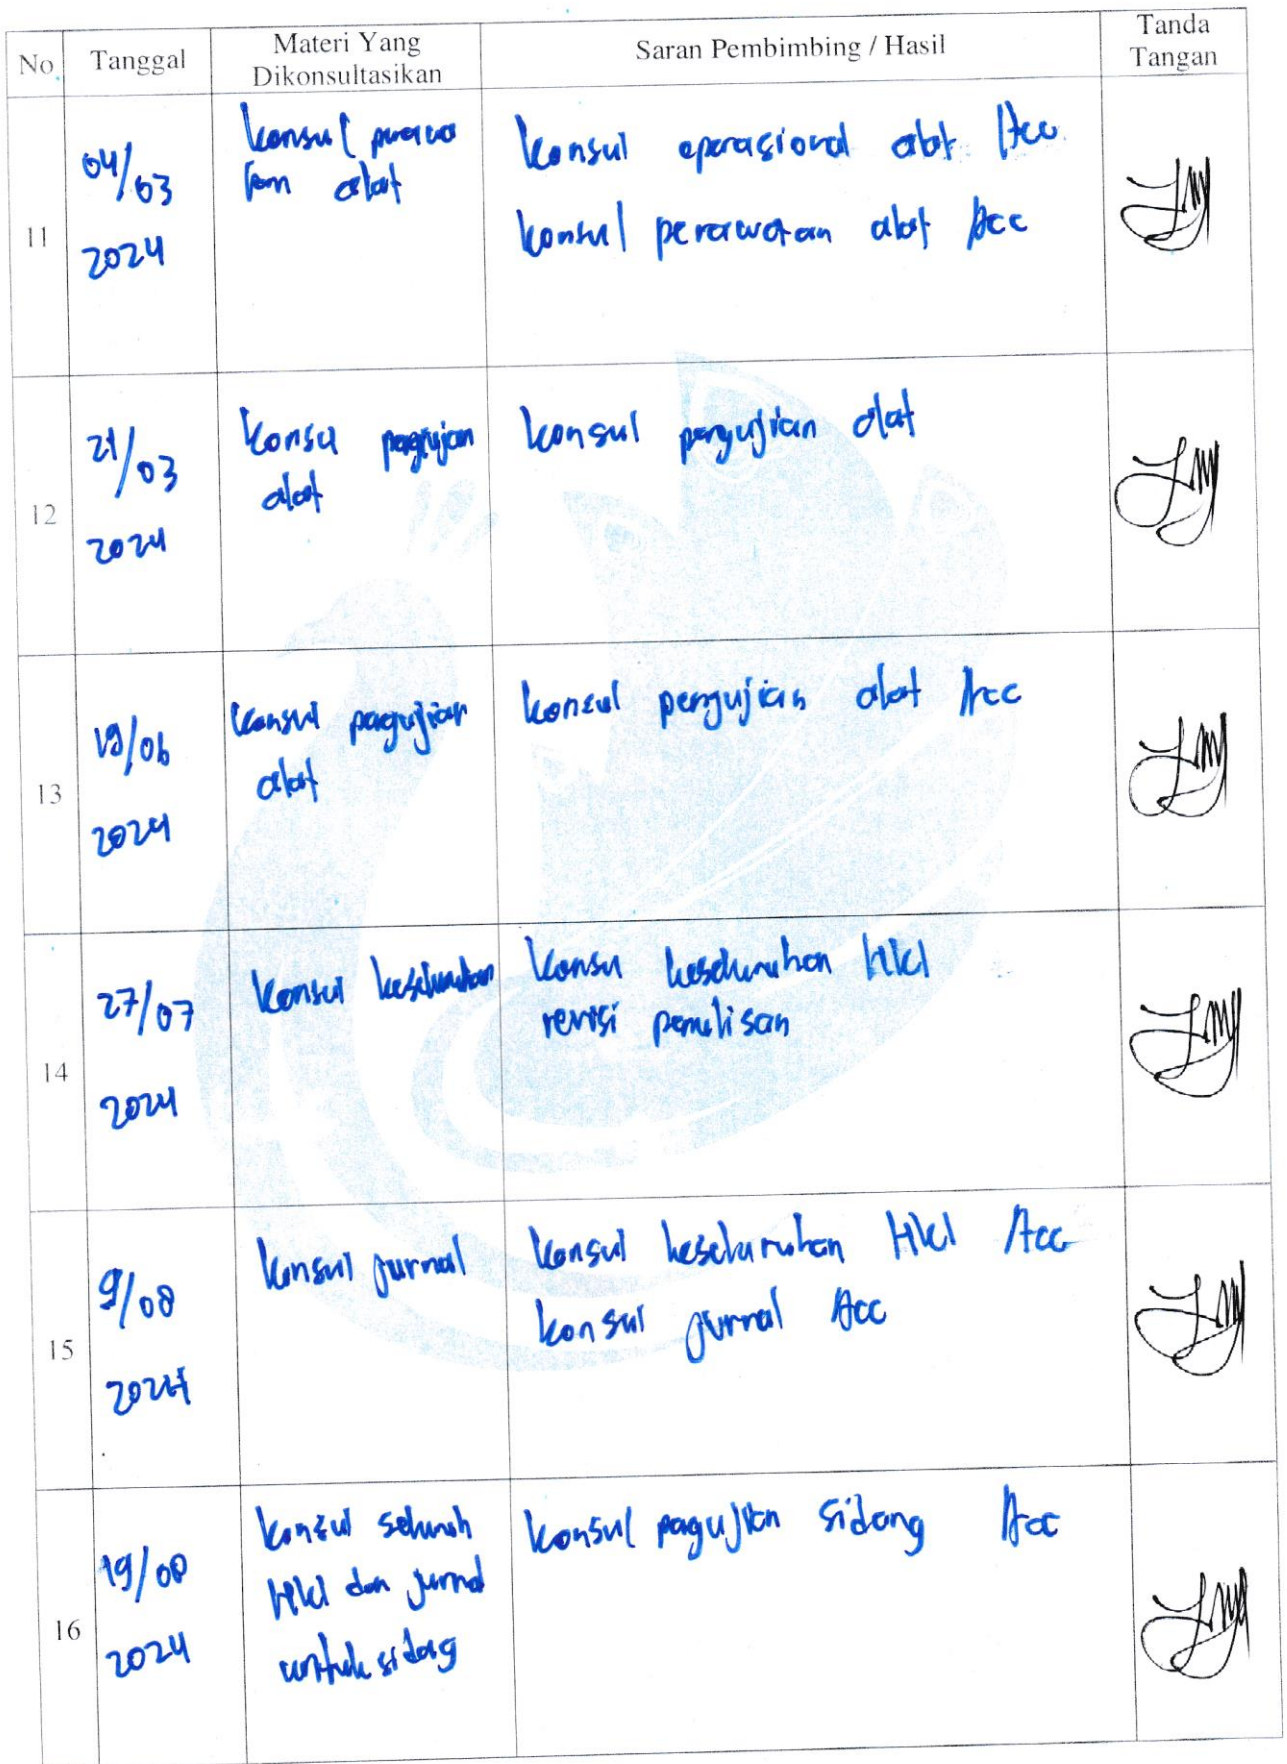 No Tanggal Materi Yang Saran Pembimbing / Hasil Tanda
Dikonsultasikan Tangan
11
04/03
2024
konsul perawa
tan alat
konsul operasional alat Acc
konsul perawatan alat Acc
12
21/03
2024
konsul
alat
konsul pengujian alat
13
19/06
2024
konsul pagujian
alat
konsul pengujian alat Acc
14
27/07
2024
konsul keseluruhan
konsul keseluruhan HKI
revisi penulisan
15
9/08
2024
konsul jurnal
konsul keseluruhan HKI Acc
konsul jurnal Acc
16
19/08
2024
konsul seluruh
HKI dan jurnal
untuk sidang
konsul pagujian sidang Acc